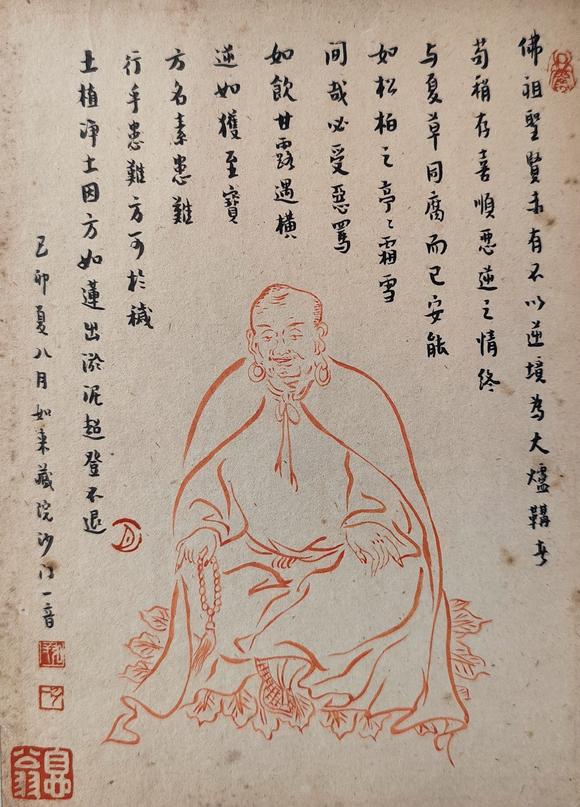 佛祖聖賢未有不以逆境為大爐鞴者
苟稍存喜順惡逆之情終
与夏草同腐而已安能
如松柏之亭亭霜雪
间哉必受惡罵
如飲甘露遇橫
逆如獲至寶
方名素患難
行乎患難方可於穢
土植淨土因方如蓮出淤泥超登不退
己卯夏八月如来藏院沙门一音